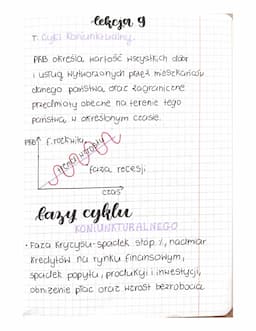 lekcja 9
T: Cykl koniunkturalny.
PKB określa wartość wszystkich dóbr
i usług wytworzonych przez mieszkańców
danego państwa, oraz zagraniczne
przedmioty obecne na terenie tego
państwa, w określonym czasie.
PKB f. rozkwitu
faza recesji
czas
fazy cyklu
KONIUNKTURALNEGO
• Faza kryzysu- spadek stóp %, nadmiar
kredytów na rynku finansowym,
spadek popytu, produkcji i inwestycji,
obniżenie płac oraz wzrost bezrobocia.